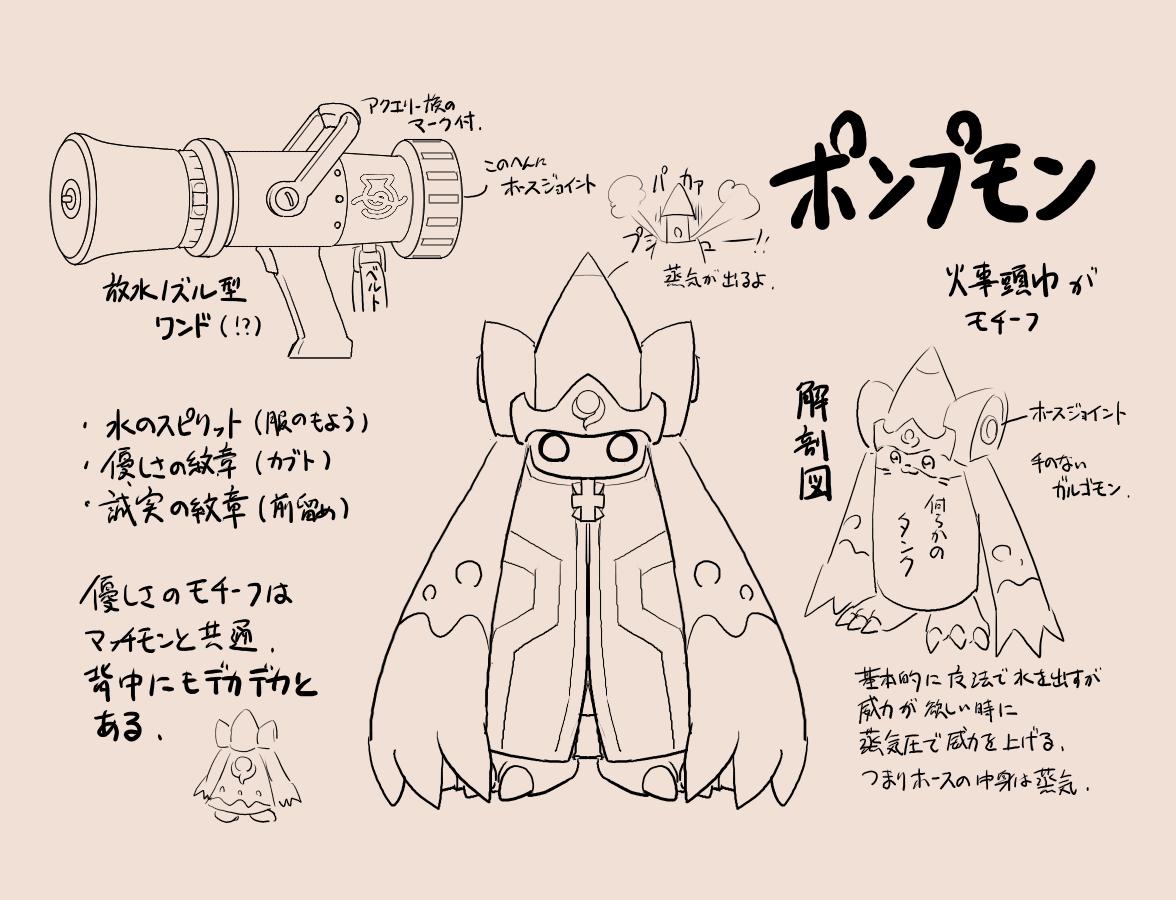 アクエリー族の
マーク付.
このへんに
ホースジョイント
ベルト
放水ノズル型
ワンド(!?)
パカァ
プシュー—!!
蒸気が出るよ.
ポンプモン
火事頭巾が
モチーフ
・水のスピリット(服のもよう)
・優しさの紋章(カブト)
・誠実の紋章(前留め)
優しさのモチーフは
マッチモンと共通.
背中にもデカデカと
ある.
解剖図
ホースジョイント
手のない
ガルゴモン.
何らかの
タンク
基本的に技法で水を出すが
威力が欲しい時に
蒸気圧で威力を上げる.
つまりホースの中身は蒸気.